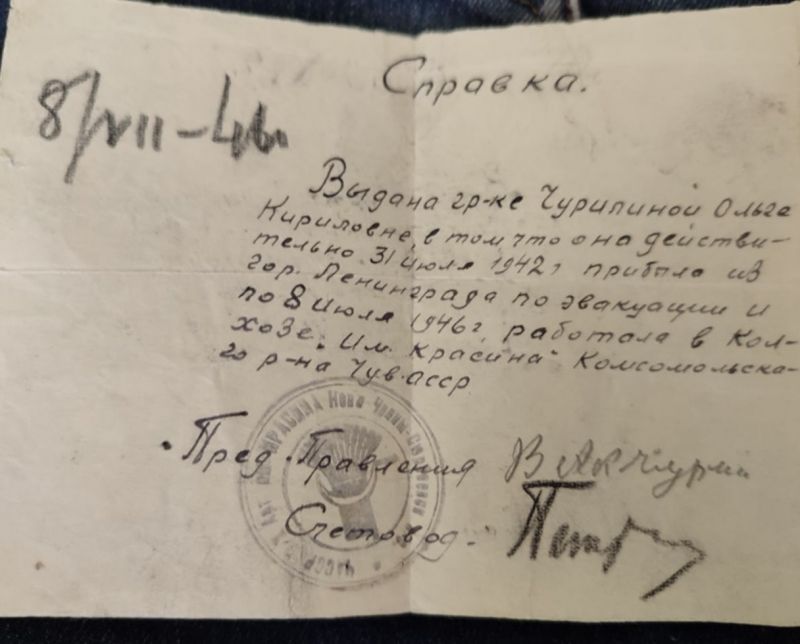 Справка.
8/VII-46г.
Выдана гр-ке Чурипиной Ольге
Кириловне, в том что она действи-
тельно 31 июля 1942г прибыла из
гор. Ленинграда по эвакуации и
по 8 июля 1946г. работала в Кол-
хозе „Им. Красина" Комсомольска-
го р-на Чув.асср
Пред. Правления
Счетовод.
КРАСИНА Ново-
ЧАССР